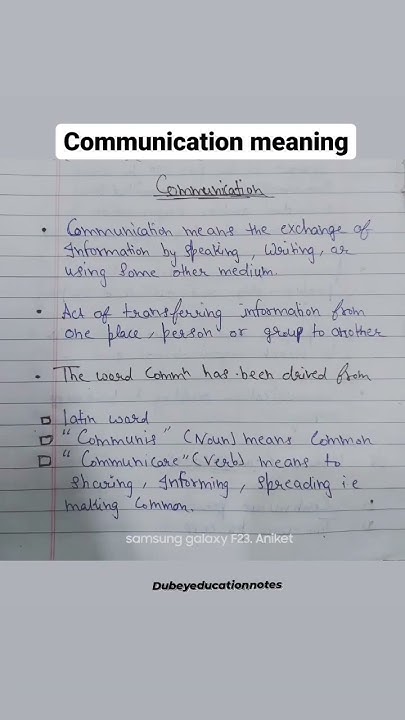 Communication meaning
Communication
• Communication means the exchange of
Information by speaking, Writing, or
using some other medium.
• Act of transferring information from
one place, person or group to another
• The word Commn has been drived from
Latin word
"Communis" (Noun) means Common
"Communicare" (Verb) means to
sharing, Informing, spreading ie
making Common.
samsung galaxy F23. Aniket
Dubeyeducationnotes